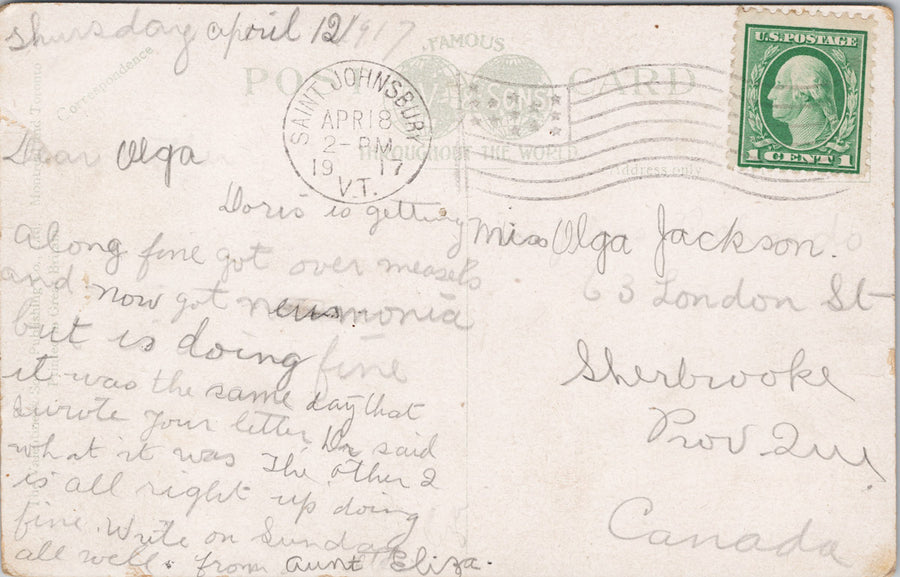 Thursday April 12 1917
Correspondence
FAMOUS
POST CARD
THROUGHOUT THE WORLD
Address only
SAINT JOHNSBURY
APR 18
2-PM
19 17
VT.
U.S. POSTAGE
1 CENT 1
Dear Olga
Doris is getting
along fine got over measels
and now got neumonia
but is doing fine
it was the same day that
I wrote your letter Dr said
what it was The other 2
is all right up doing
fine. Write on Sunday
all well. from Aunt Eliza.
Miss Olga Jackson.
63 London St
Sherbrooke
Prov Que
Canada